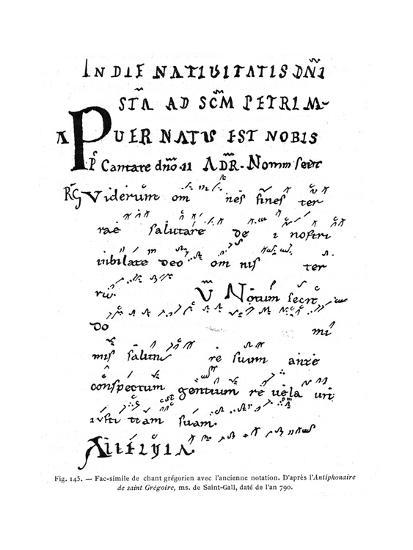 IN DIE NATIVITATIS DÑI
STA AD SCM PETRI M
A PUER NATUS EST NOBIS
Ps Cantare dño 11 ADR. Notum fecit
RG Viderunt om nes fines ter
rae salutare de i nostri
iubilate deo om nis ter
ra. V Notum fecit
Do mi
nus salut re suum ante
conspectum gentium re vela uit
iusti tiam suam.
Alleluia.
Fig. 145. — Fac-simile de chant grégorien avec l'ancienne notation. D'après l'Antiphonaire
de saint Grégoire, ms. de Saint-Gall, daté de l'an 790.